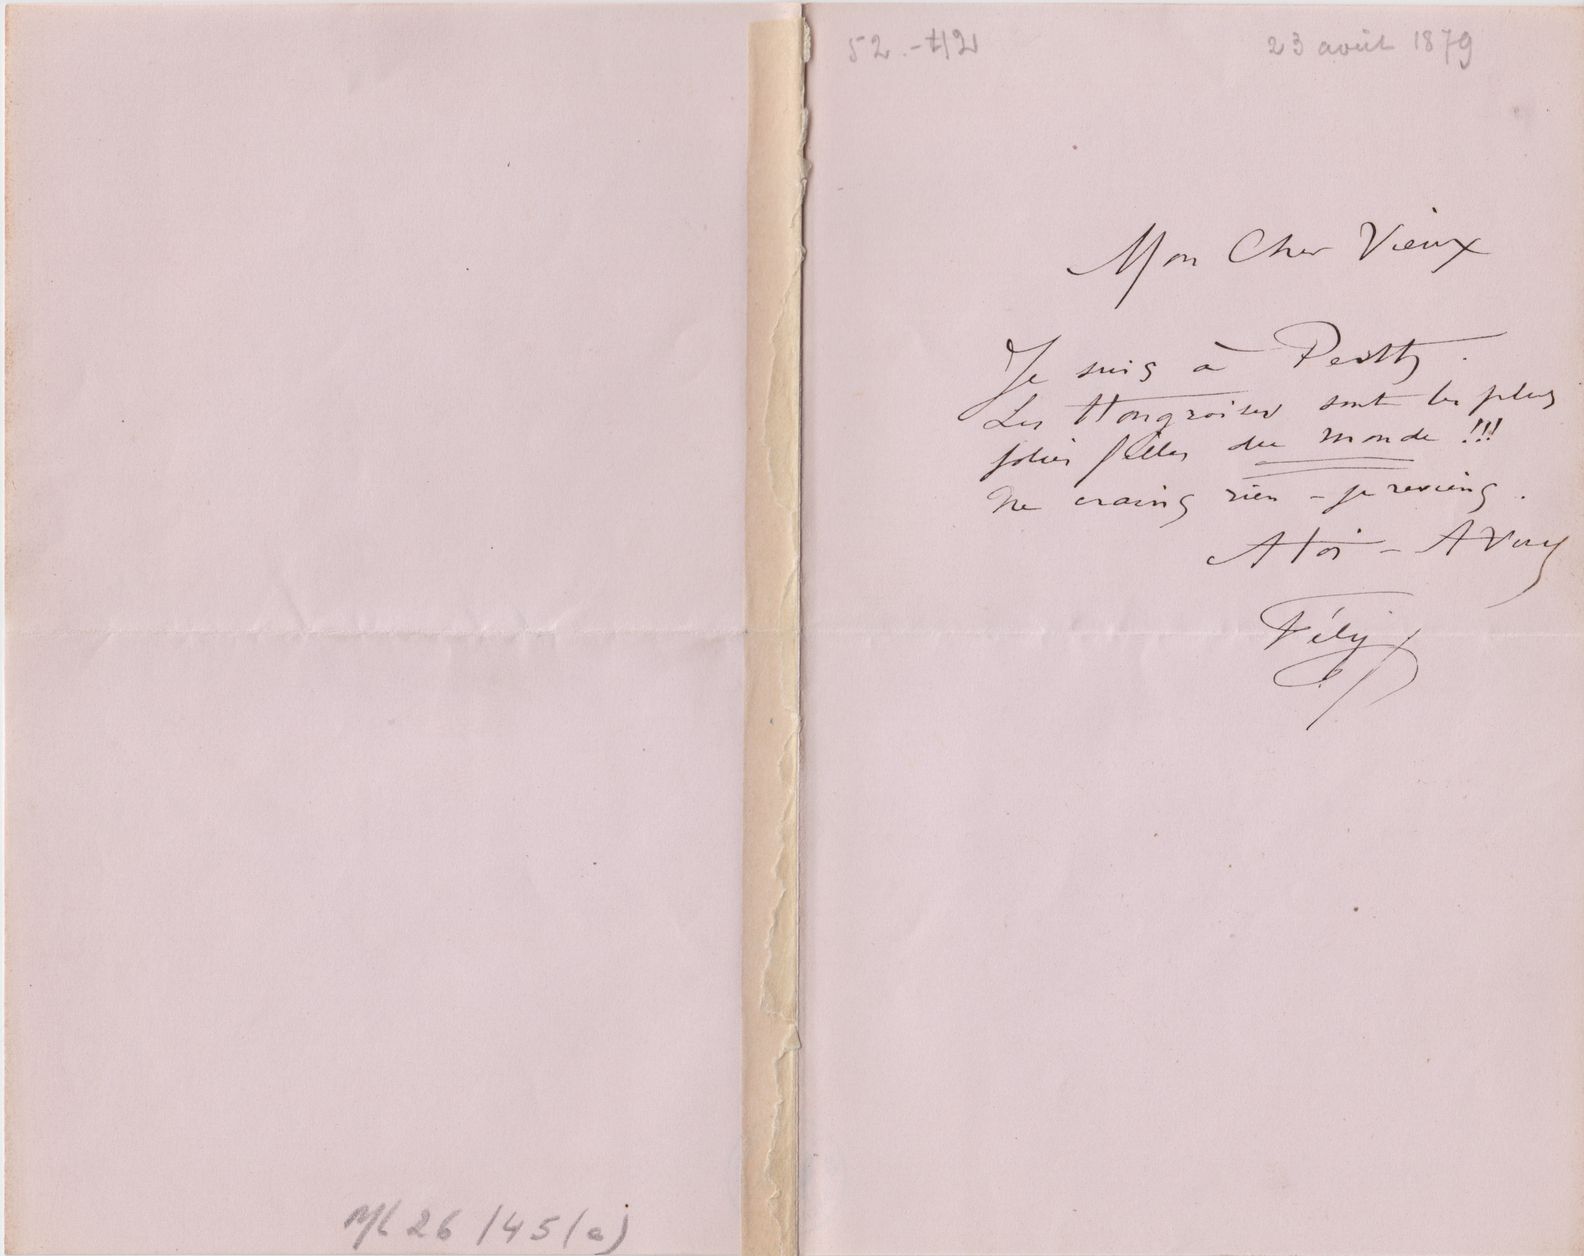 52.-42
23 août 1879
Mon Cher Vieux
Je suis à Pesth.
Les Hongroises sont les plus
jolies filles du monde !!!
Ne crains rien – je reviens.
A toi – A Vous
Fély
ML 26 /45 (a)